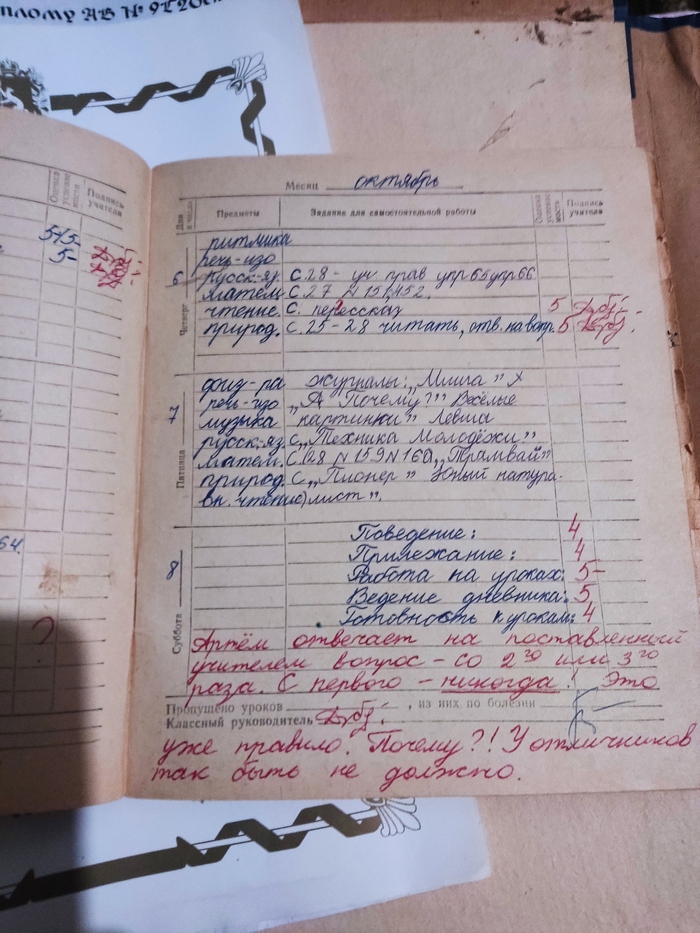 плому АВ №
Оценка успеваемости
Подпись учителя
5 5-
5-
64.
Месяц октябрь
Дни и числа Предметы Задание для самостоятельной работы Оценка успеваемости Подпись учителя
6 Четверг
ритмика
речь-изо
русск-яз. с. 28 - уч. прав упр 65 упр 66
матем. с. 27 N 151, 152.
чтение. с. пересказ 5
природ. с. 25-28 читать, отв. на вопр. 5
7 Пятница
физ-ра журналы: „Миша"
речь-изо „А Почему?" Весёлые
музыка картинки" Левша
русск-яз. с „Техника Молодёжи"
матем. с. 28 N 159 N 160 „Трамвай"
природ. с „Пионер" Юный натура-
вн. чтение) лист".
8 Суббота
Поведение: 4
Прилежание: 4
Работа на уроках: 5-
Ведение дневника: 5
Готовность к урокам: 4
Артём отвечает на поставленный
учителем вопрос - со 2го или 3го
раза. С первого - никогда! Это
Пропущено уроков , из них по болезни
Классный руководитель
уже правило. Почему?! У отличников
так быть не должно.